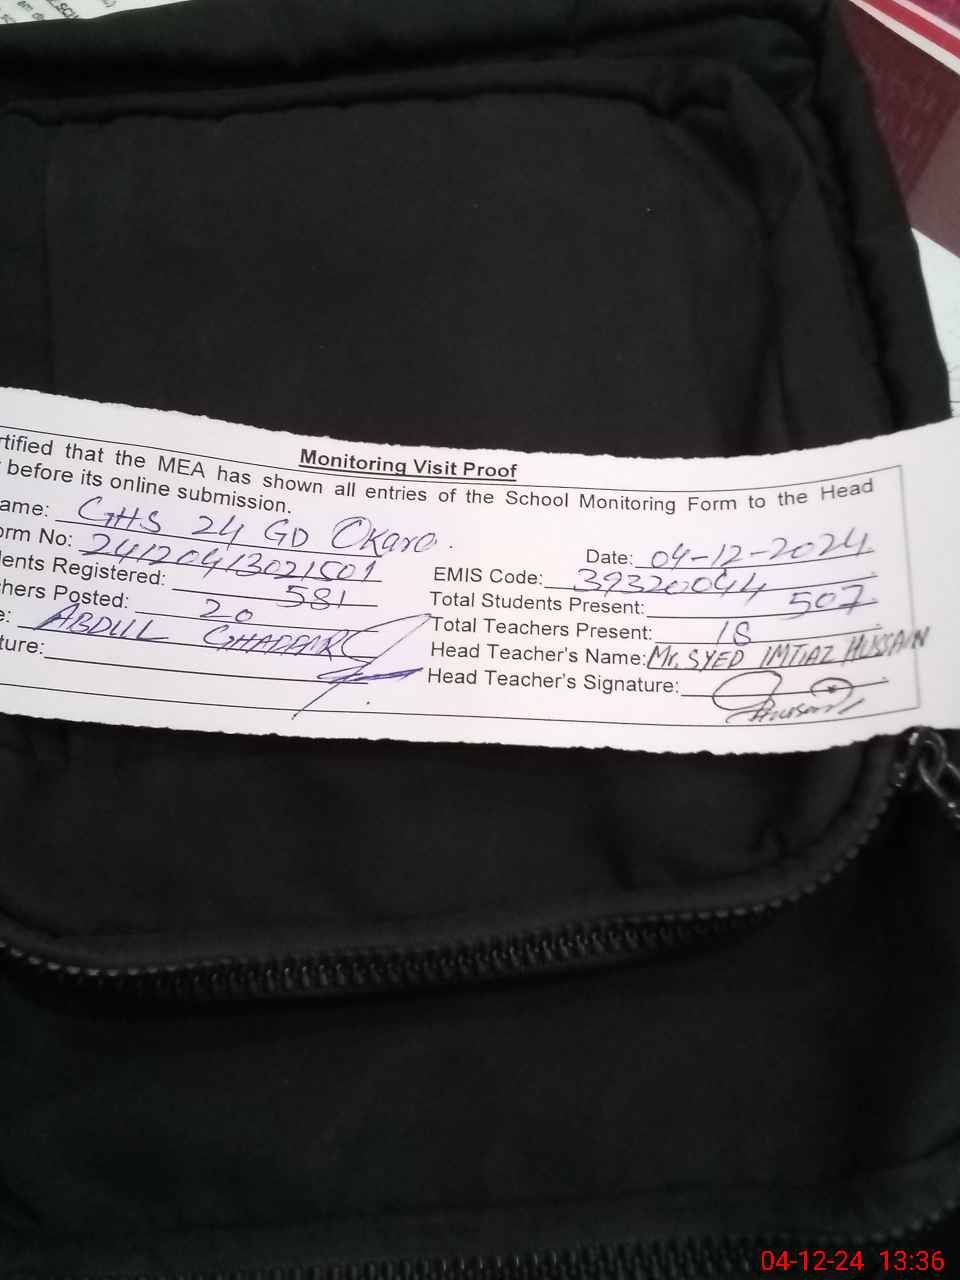 Monitoring Visit Proof
rtified that the MEA has shown all entries of the School Monitoring Form to the Head
before its online submission.
ame: GHS 24 GD Okara.
Date: 04-12-2024
orm No: 24120413021501
EMIS Code: 39320044
dents Registered: 581
Total Students Present: 507
hers Posted: 20
Total Teachers Present: 18
e: ABDUL GHAFFAR
Head Teacher's Name: Mr. SYED IMTIAZ HUSSAIN
ture:
Head Teacher's Signature:
04-12-24 13:36